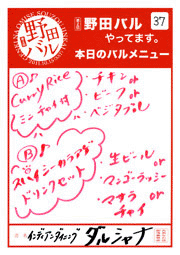 野田バル
第3回 野田バル
37
やってます。
本日のバルメニュー
Ⓐ
Curry Rice
ミンチィ付
チキン or
ビーフ or
ベジタブル
Ⓑ
スパイシーカラアゲ
ドリンクセット
生ビール or
マンゴーラッシー or
マサラ or
チャイ
インディアンダイニング ダルシャナ